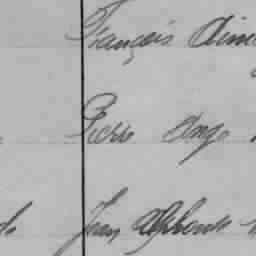 François Aim
Pierre Ange
Jean Alphonse